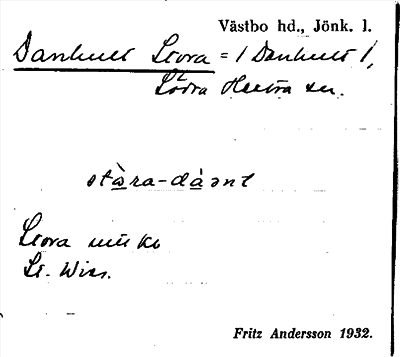 Västbo hd., Jönk. l.
Danhult Stora = 1 Danhult 1,
Södra Hestra sn.
stàra-dåant
Stora
Fritz Andersson 1932.